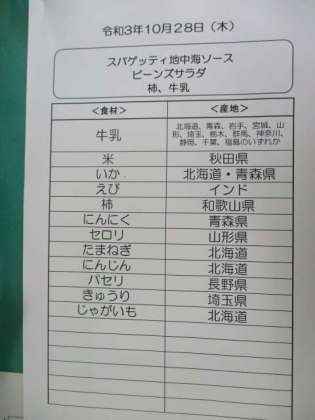 令和3年10月28日（木）
スパゲッティ地中海ソース
ビーンズサラダ
柿、牛乳
＜食材＞ ＜産地＞
牛乳 北海道、青森、岩手、宮城、山
形、埼玉、栃木、群馬、神奈川、
静岡、千葉、福島のいずれか
米 秋田県
いか 北海道・青森県
えび インド
柿 和歌山県
にんにく 青森県
セロリ 山形県
たまねぎ 北海道
にんじん 北海道
パセリ 長野県
きゅうり 埼玉県
じゃがいも 北海道